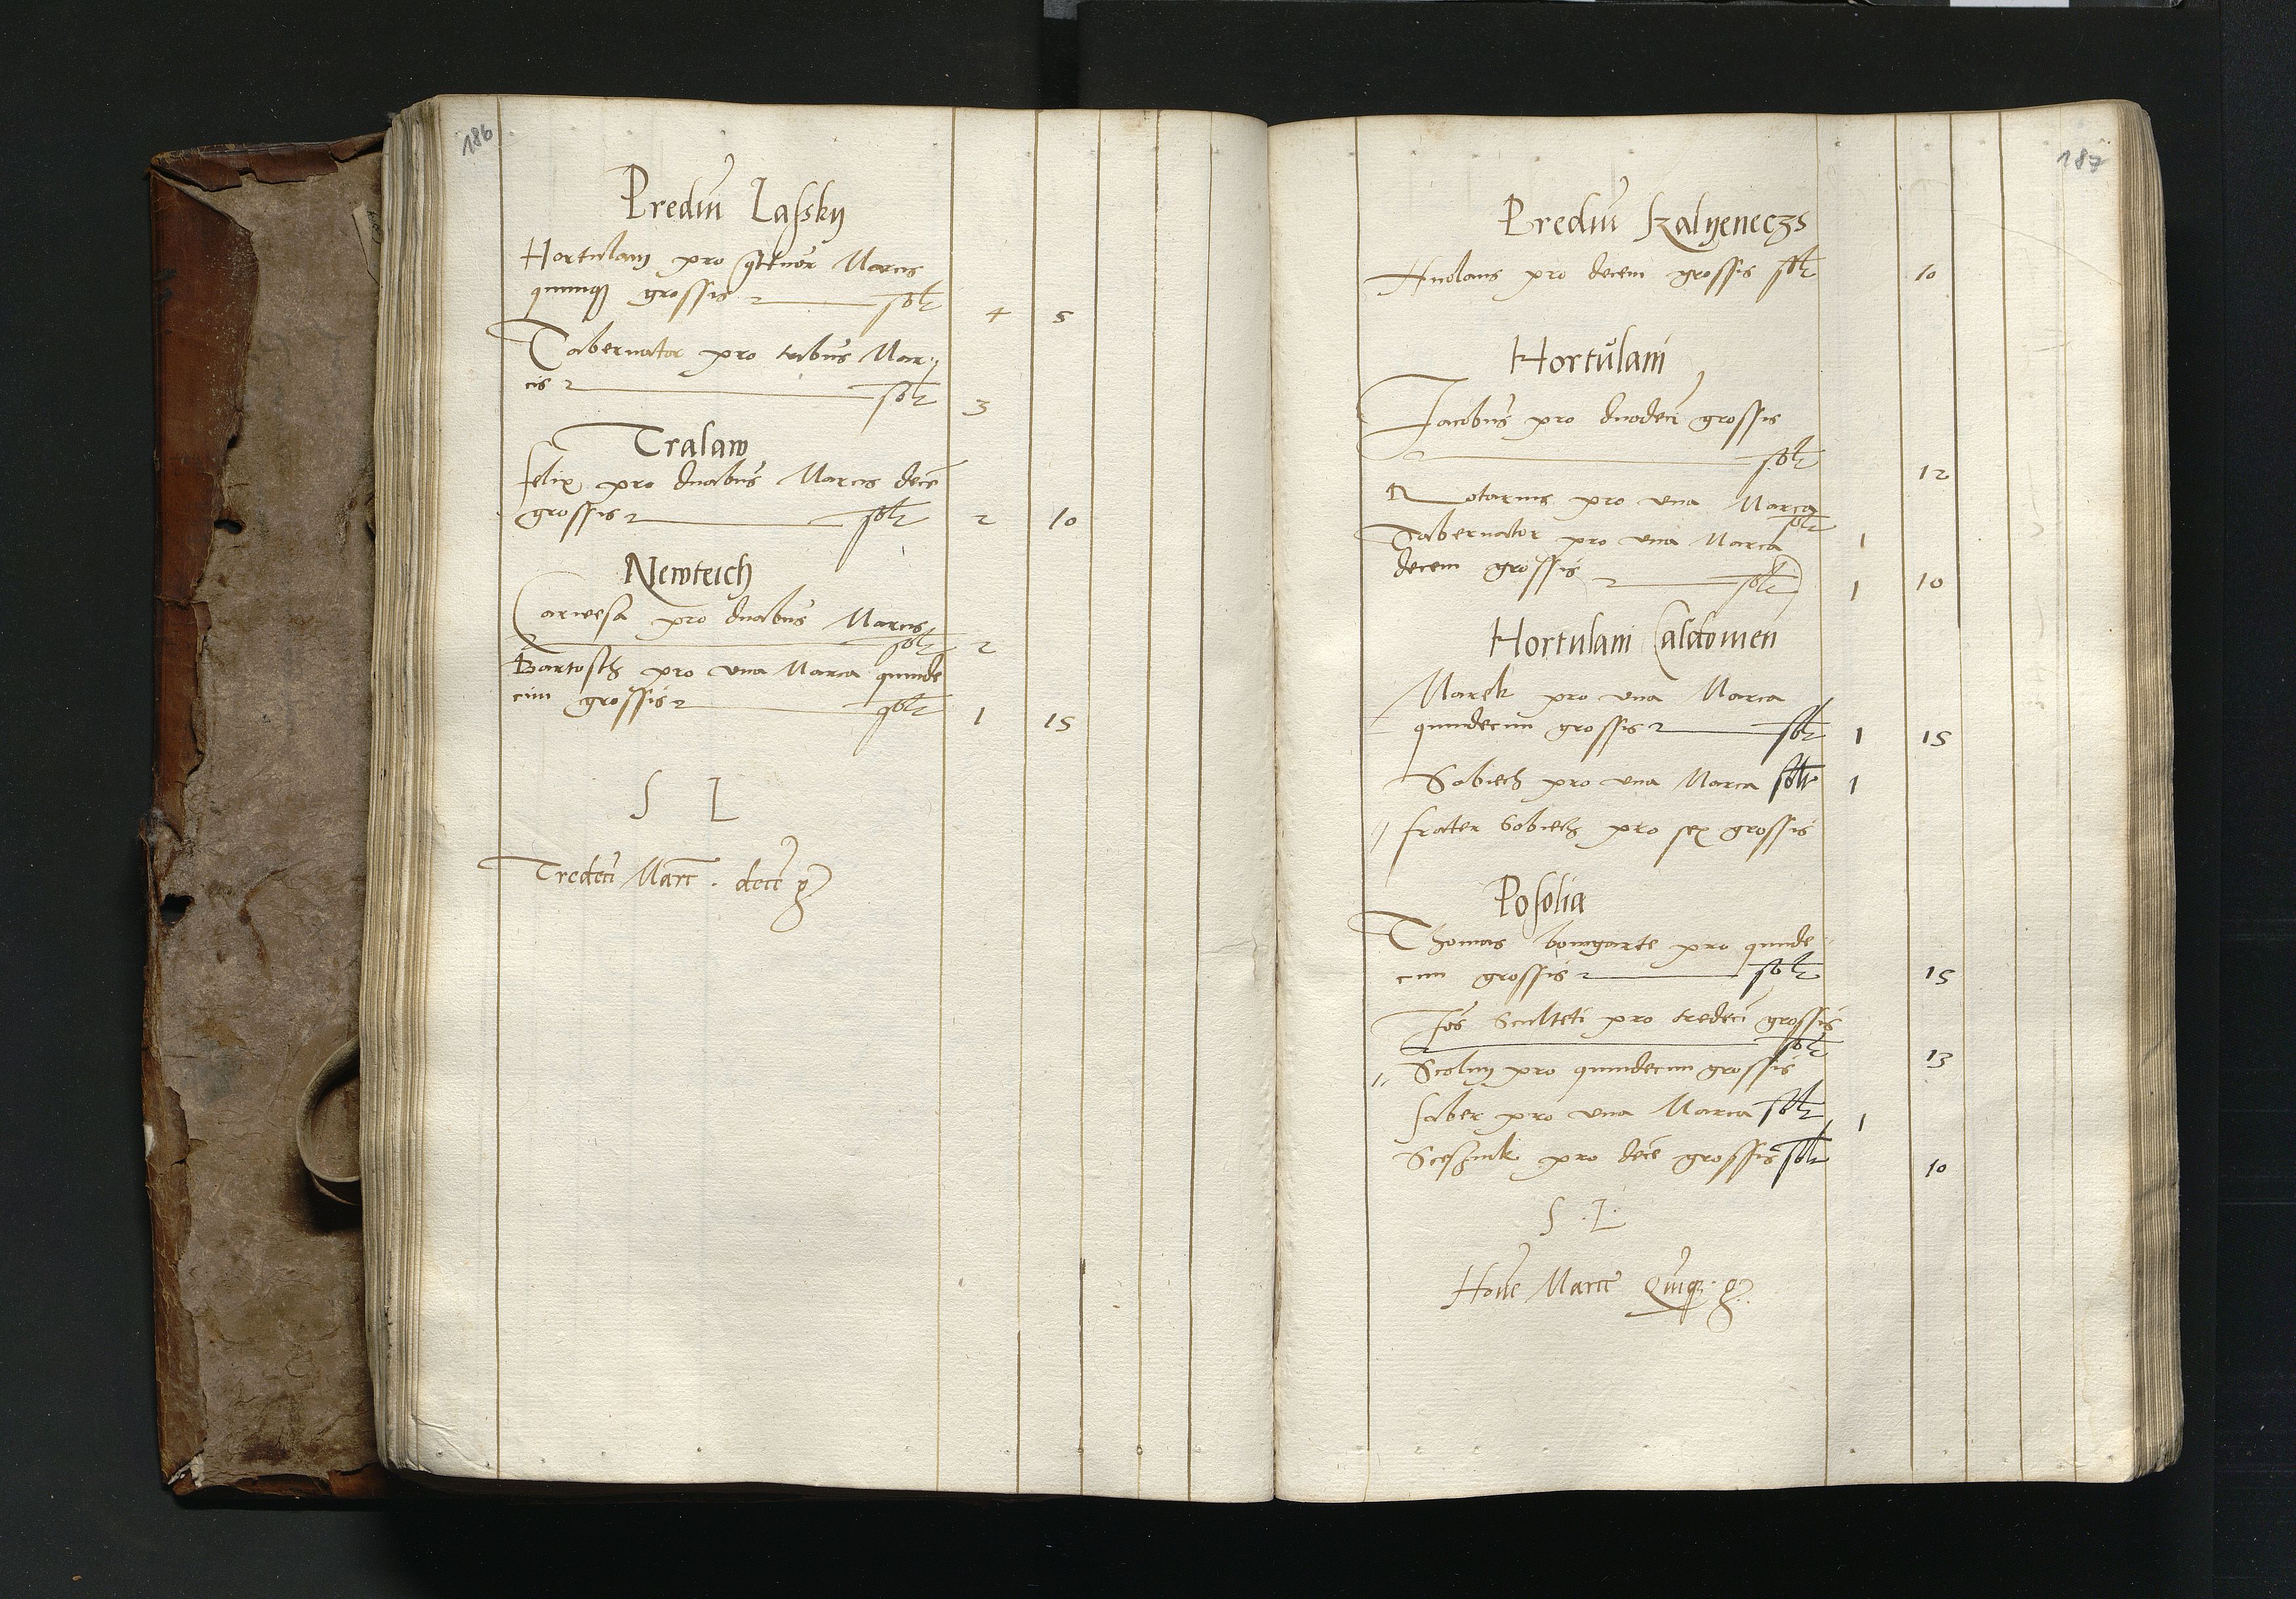 186
Prediū Lassky
Hortulani pro qttuor Marcis
quinq₃ grossis solt 4 5
Tabernator pro tribus Mar
cis solt 3
Tralaw
Felix pro duabus Marcis decē
grossis solt 2 10
Newteich
Carwesa pro duabus Marcis
solt 2
Bartosch pro una Marca quinde
cim grossis solt 1 15
S L
Tredecī Marc. decē g
187
Prediū Kalyeneczs
pro decem grossis solt 10
Hortulani
Jacobus pro duodecī grossis
solt 12
Notarius pro una Marca
solt 1
Tabernator pro una Marca
decem grossis solt 1 10
Hortulani Caldowien
Marek pro una Marca
quindecim grossis solt 1 15
Sobiech pro una Marca solt 1
frater Sobiech pro sex grossis
Posolia
Thomas bomgarte pro quinde
cim grossis solt 15
Sculteti pro tredecī grossis
solt 13
Scoluy pro quindecim grossis
faber pro una Marca solt 1
pro decē grossis solt 10
S. L.
Marce Quīq₃ g.